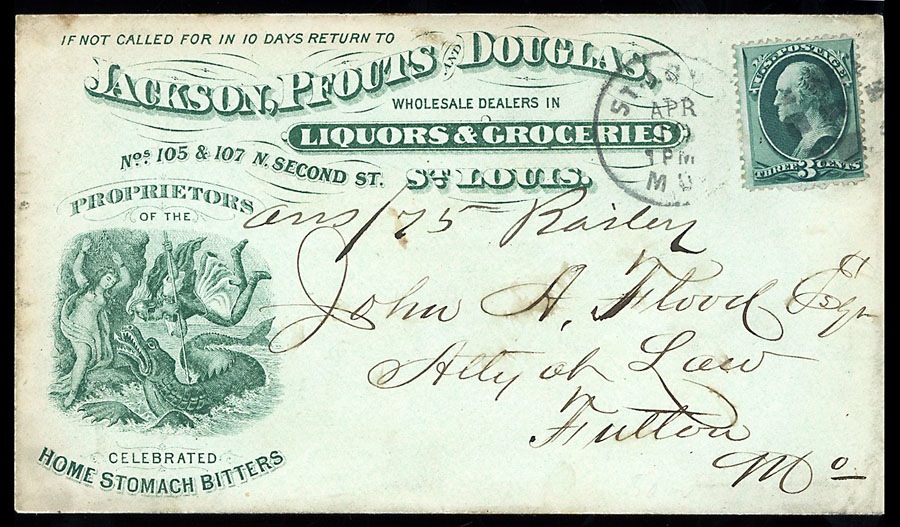 IF NOT CALLED FOR IN 10 DAYS RETURN TO
JACKSON, PFOUTS AND DOUGLAS,
WHOLESALE DEALERS IN
LIQUORS & GROCERIES
Nos. 105 & 107 N. SECOND ST. ST LOUIS.
PROPRIETORS
OF THE
CELEBRATED
HOME STOMACH BITTERS
APR
1 PM
MO
U.S. POSTAGE
THREE 3 CENTS
ans / 75
John A. Flood Esqr
Atty at Law
Fulton
Mo